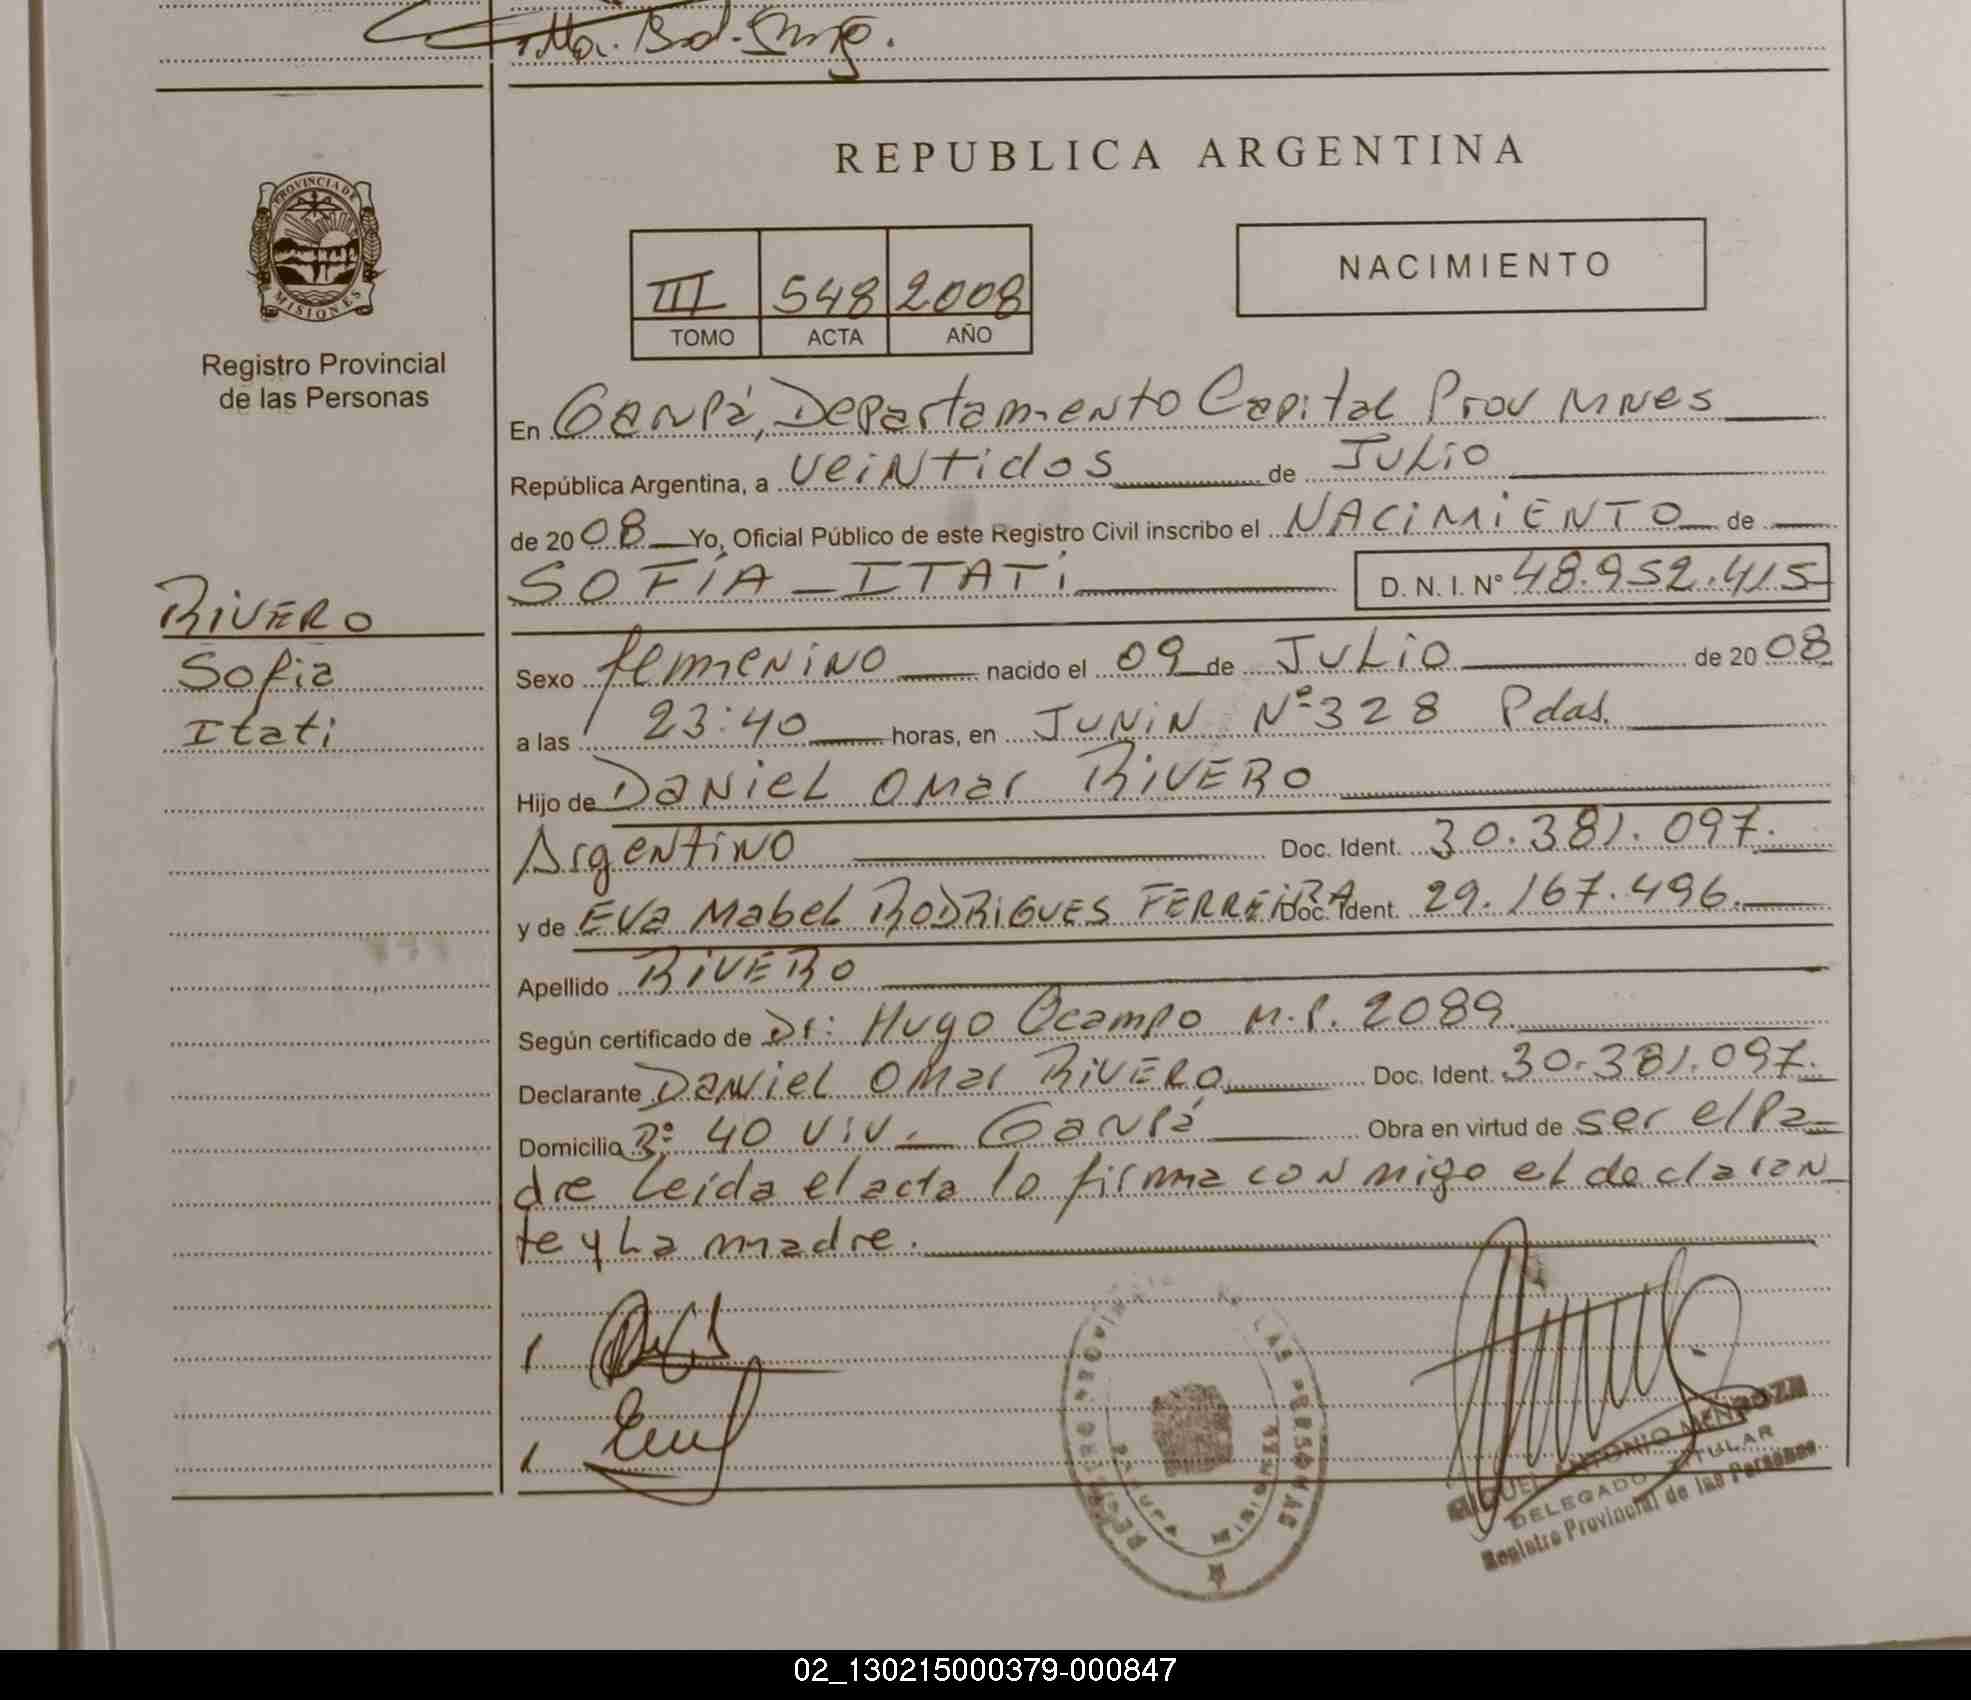 REPUBLICA ARGENTINA
PROVINCIA DE
MISIONES
Registro Provincial
de las Personas
III 548 2008
TOMO ACTA AÑO
NACIMIENTO
En Garupá, Departamento Capital Prov Mnes
República Argentina, a Veintidos de Julio
de 2008 Yo, Oficial Público de este Registro Civil inscribo el NACIMIENTO de
SOFÍA - ITATÍ D. N. I. N° 48.952.415
RIVERO
Sofia
Itati
Sexo femenino nacido el 09 de Julio de 2008
a las 23:40 horas, en Junin N° 328 Pdas.
Hijo de Daniel Omar RIVERO
Argentino Doc. Ident. 30.381.097.
y de Eva Mabel RODRIGUES FERREIRA Doc. Ident. 29.167.496.
Apellido RIVERO
Según certificado de Dr: Hugo Ocampo M.P. 2089
Declarante Daniel Omar RIVERO Doc. Ident. 30.381.097.
Domicilio B° 40 Viv. Garupá Obra en virtud de ser el Pa-
dre Leida el acta lo firma con migo el declaran-
te y La madre.
REGISTRO PROVINCIAL DE LAS PERSONAS
GARUPA MISIONES
MIGUEL ANTONIO MENDOZA
DELEGADO TITULAR
Registro Provincial de las Personas
02_130215000379-000847